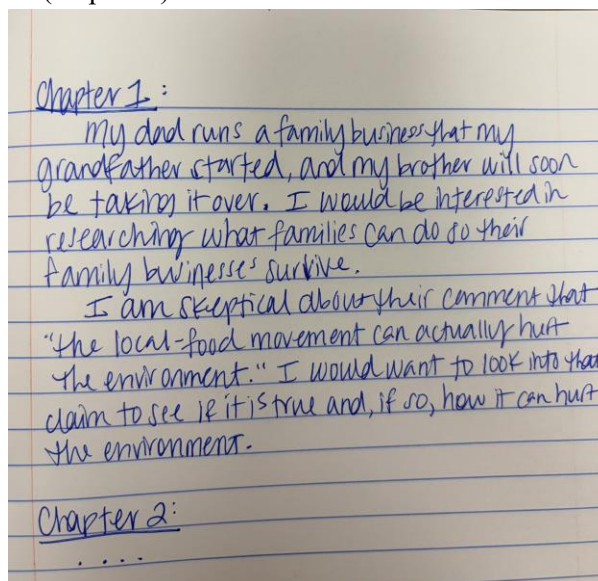 Chapter 1:
My dad runs a family business that my
grandfather started, and my brother will soon
be taking it over. I would be interested in
researching what families can do so their
family businesses survive.
I am skeptical about their comment that
"the local-food movement can actually hurt
the environment." I would want to look into that
claim to see if it is true and, if so, how it can hurt
the environment.
Chapter 2:
....